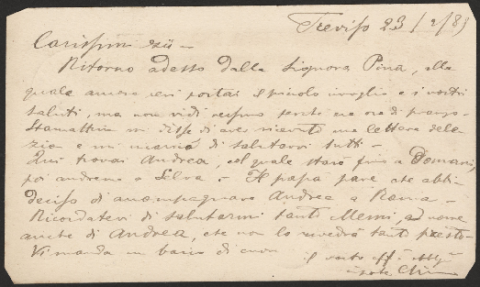 Treviso 23/2/85
Carissimi zii –
Ritorno adesso dalla Signora Pina, alla
quale ancora ieri portai il piccolo involto e i vostri
saluti, ma non vidi nessuno perchè era ora di pranzo.
Stamattina mi disse di aver ricevuto una lettera della
zia e mi incaricò di salutarvi tutti –
Qui trovai Andrea, col quale starò fino a Domani,
poi andremo a Silva – Il papà pare che abbia
deciso di accompagnare Andrea a Roma –
Ricordatevi di salutarmi tanto Memi, a nome
anche di Andrea, che non lo rivedrà tanto presto –
Vi manda un bacio di cuore
il vostro aff.
nipote